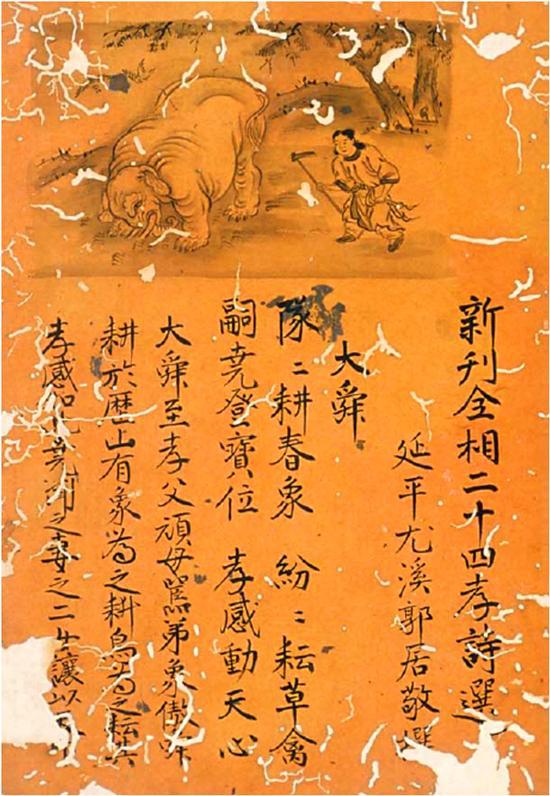 新刊全相二十四孝詩選
延平尤溪郭居敬撰
大舜
隊〻耕春象 紛〻耘草禽
嗣尭登寶位 孝感動天心
大舜至孝父頑母嚚弟象傲
耕於歴山有象為之耕鳥為之耘其
孝感如此尭 之妻之二女讓以